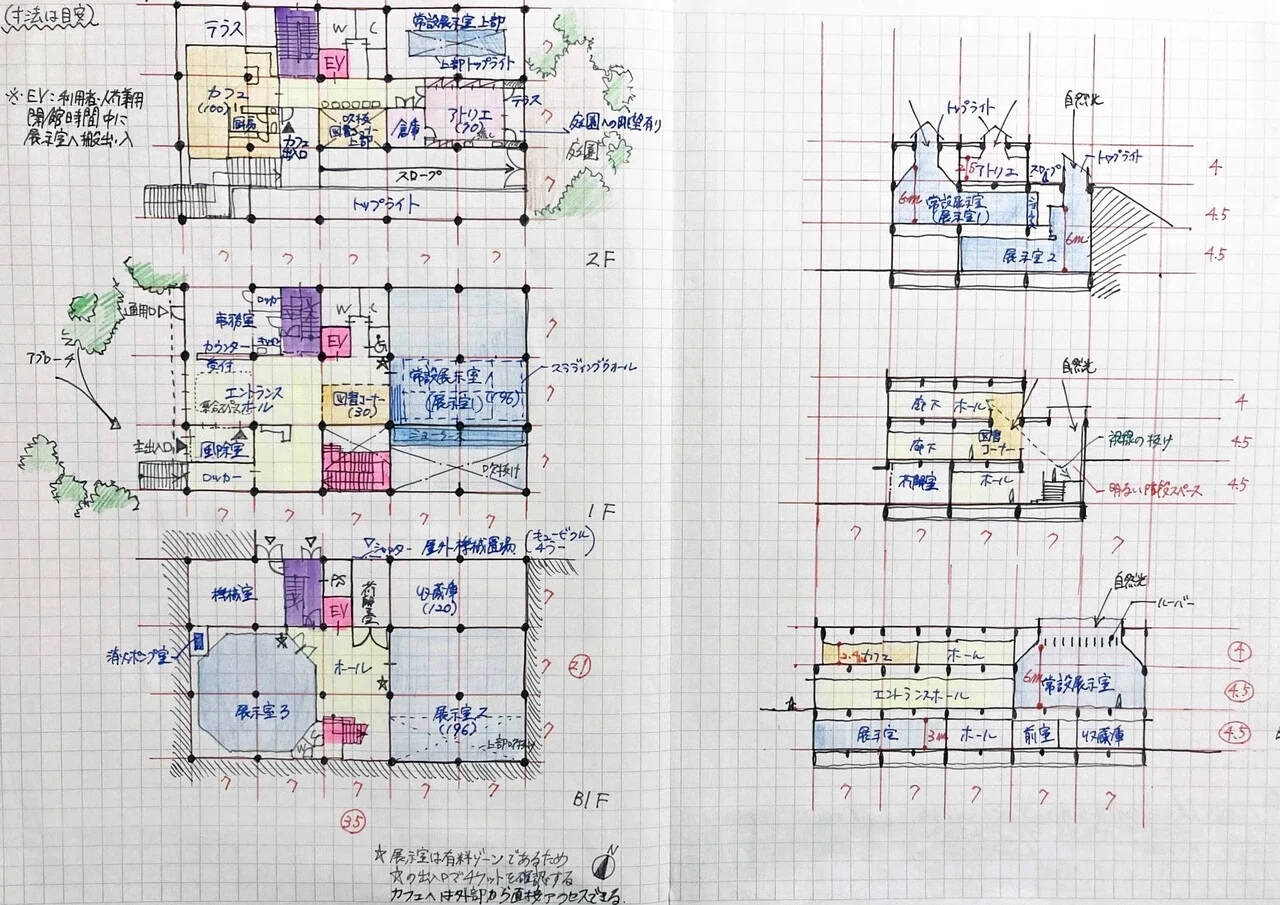 (寸法は目安)
テラス
W C
常設展示室上部
上部トップライト
EV
※EV:利用者・人荷兼用
閉館時間中に
展示室へ搬出入
カフェ
(100)
厨房
カフェ
出入口
吹抜
図書コーナー
上部
倉庫
アトリエ
(70)
テラス
庭園への眺望有り
庭園
スロープ
トップライト
7 7 7 7 7
2F
通用口
事務室
ロッカー
W C
EV
カウンター
受付
アプローチ
エントランス
ホール
図書コーナー
(30)
常設展示室
(展示室1)
(196)
スライディングウォール
主出入口
風除室
ロッカー
吹抜け
7 7 7 7 7
1F
シャッター 屋外機械置場
機械室
PS
EV
荷解室
収蔵庫
(120)
消火ポンプ室
ホール
展示室3
展示室2
(196)
上部吹抜け
21
7 7 7 7 7
B1F
35
☆展示室は有料ゾーンであるため
☆の出入口でチケットを確認する
カフェへは外部から直接アクセスできる.
N
トップライト
自然光
トップライト
アトリエ
スロープ
6m
常設展示室
(展示室1)
6m
展示室2
4
4.5
4.5
自然光
廊下 ホール
廊下
図書
コーナー
荷解室
ホール
視線の抜け
明るい階段スペース
4
4.5
4.5
7 7 7 7 7
自然光
ルーバー
カフェ
ホール
エントランスホール
6m
常設展示室
展示室
3m
ホール
前室
収蔵庫
4
4.5
4.5
7 7 7 7 7